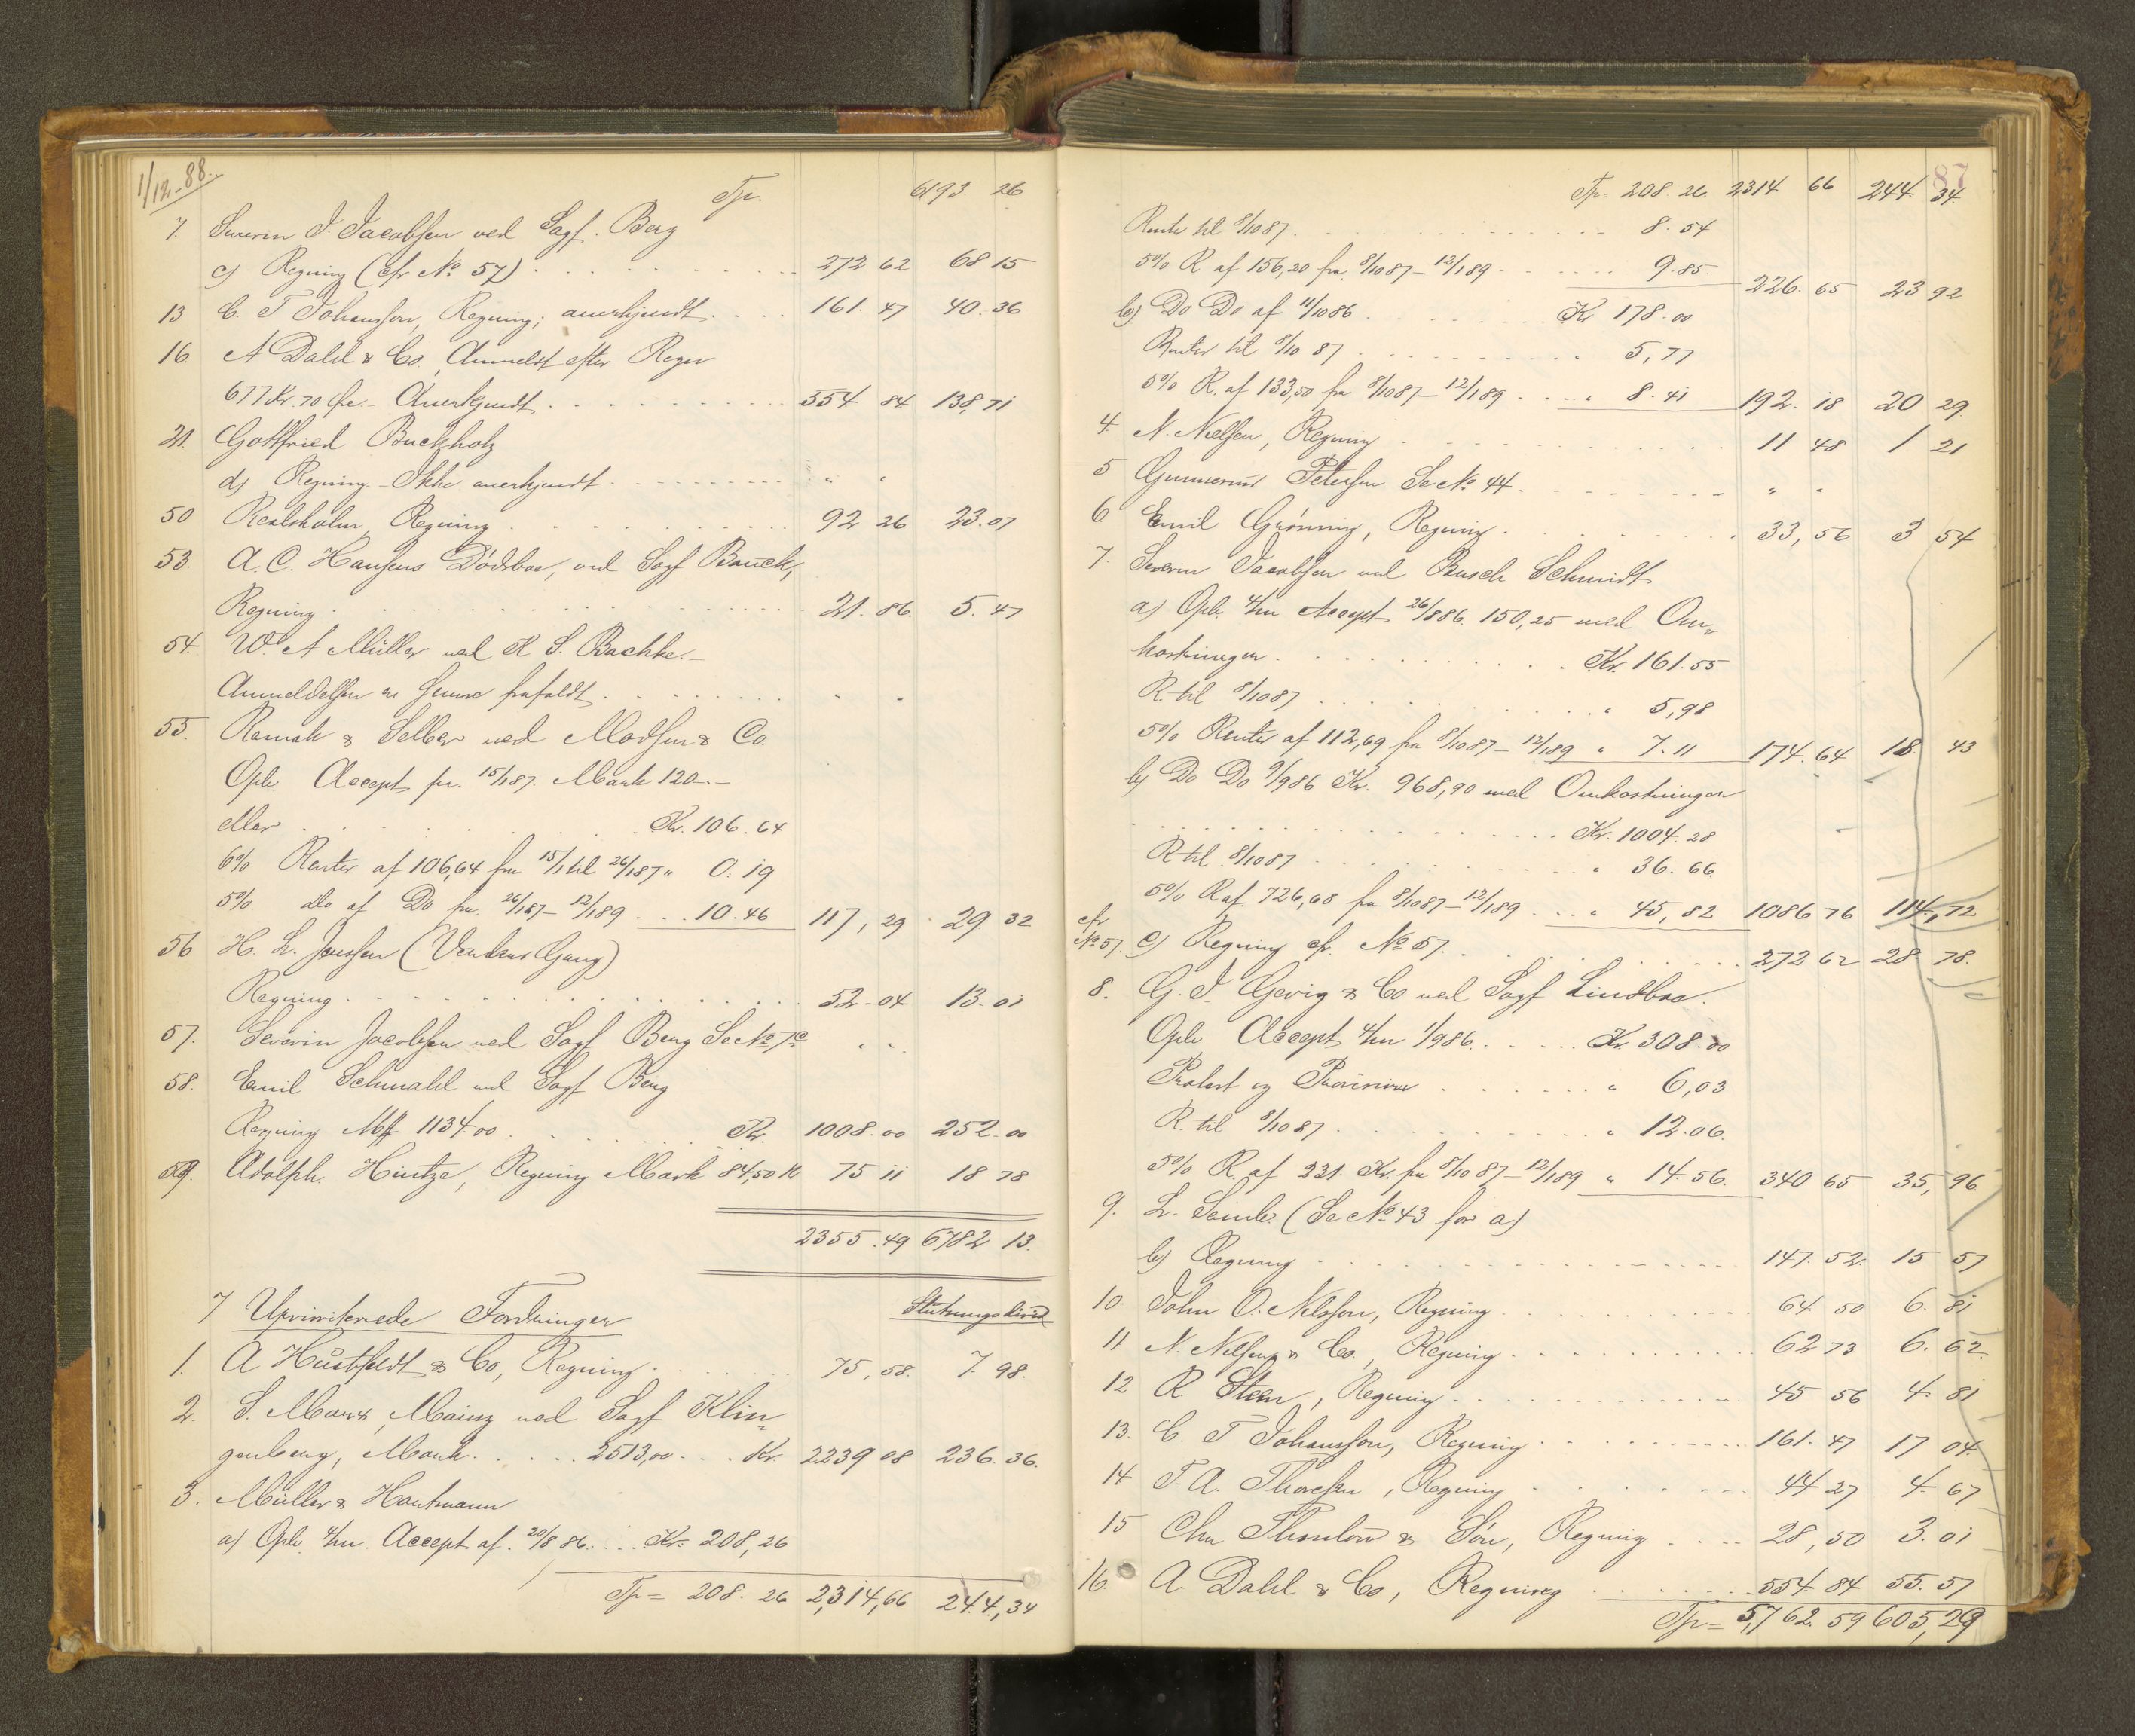 1/12-88.
Tp. 6193 26
7. Severin I. Jacobsen ved Sagf. Berg
c) Regning (cfr No 57) 272 62 68 15
13 C. T Johansson, Regning; anerkjendt 161. 47 40. 36
16. A Dahl & Co, Anmeldt efter Regn
677 Kr. 70 Øre - Anerkjendt 554 84 138,71
21. Gottfried Buckholz
d) Regning - Ikke anerkjendt " "
50 Realskolen, Regning 92 26 23. 07
53. A. C. Hansens Dödsbo, ved Sagf Bauck,
Regning 21. 86. 5. 47
54. W. A Müller ved K S. Bachke. -
Anmeldelsen er senere frafaldt " "
55. Ramak & Selber ved Madsen & Co.
Opl. Accept pr. 15/1 87. Mark 120.-
eller Kr. 106. 64
6% Renter af 106,64 fra 15/1 til 26/1 87 " 0. 19
5% do af Do fra 26/1 87 - 12/1 89 10. 46 117, 29 29. 32
56 H. L. Jenssen (Vendens Gang)
Regning 52. 04 13. 01
57. Severin Jacobsen ved Sagf Berg Se No 7c " "
58. Emil Schmahl ved Sagf Berg
Regning Mk 1134.00 Kr. 1008. 00 252. 00
59. Adolph Hintze, Regning Mark 84,50 Kr 75 11 18 78
2355. 49 6782 13.
7 Uprioriterede Fordringer Slutningsdivid
1. A Huitfeldt & Co, Regning 75, 58. 7. 98.
2. S. Marx, Mainz ved Sagf Klin=
genberg, Mark 2513,00 Kr. 2239 08 236. 36.
3. Müller & Hartmann
a) Opl. 4/m. Accept af 20/8 86 Kr. 208,26
Tp = 208. 26 2,314,66 244,34
87
Tp = 208. 26. 2314 66 244. 34.
Renter til 8/10 87. 8. 54
5% R af 156,20 fra 8/10 87 - 12/1 89 9. 85. 226. 65 23 92
b) Do Do af 11/10 86 Kr 178. 00
Renter til 8/10 87 " 5,77
5% R. af 133,50 fra 8/10 87 - 12/1 89 " 8. 41 192. 18 20 29.
4. N. Nielsen, Regning 11 48 1 21
5 Gunnerius Petersen Se No 44. " "
6 Emil Grönning, Regning 33, 56 3 54
7. Severin Jacobsen ved Busch Schmidt
a) Opl. 4/m Accept 26/8 86. 150,25 med Om=
kostninger Kr. 161. 55
R. til 8/10 87 " 5,98
5% Renter af 112,69 fra 8/10 87 - 12/1 89 " 7. 11 174. 64 18. 43
b) Do Do 9/9 86 Kr. 968,90 med Omkostninger
Kr. 1004. 28
R til 8/10 87 " 36. 66.
5% R af 726,68 fra 8/10 87 - 12/1 89 " 45, 82 1086 76 114,72
cfr No 57. c) Regning cfr. No 57. 272 62 28. 78.
8. G. I. Gevig & Co ved Sagf Lindboe.
Opl. Accept 4/m 1/9 86. Kr. 308. 00
Protest og Provision " 6,03
R. til 8/10 87. " 12. 06.
5% R. af 231. Kr. fra 8/10 87 - 12/1 89 " 14. 56. 340 65 35, 96
9. L. Lemb. (Se No 43 for a)
b) Regning 147. 52. 15 57
10. John O. Nilsson, Regning 64 50 6. 81
11 N. Nilsen & Co., Regning 62 73 6. 62.
12 R Steen, Regning 45 56 4. 81
13. C. T Johansson, Regning 161. 47 17 04.
14 T. A. Thoresen, Regning 44 27 4. 67
15 Chr Thaulow & Sön, Regning 28, 50 3. 01
16. A. Dahl & Co, Regning 554. 84 55. 57
Tp = 5,762. 59 605,29